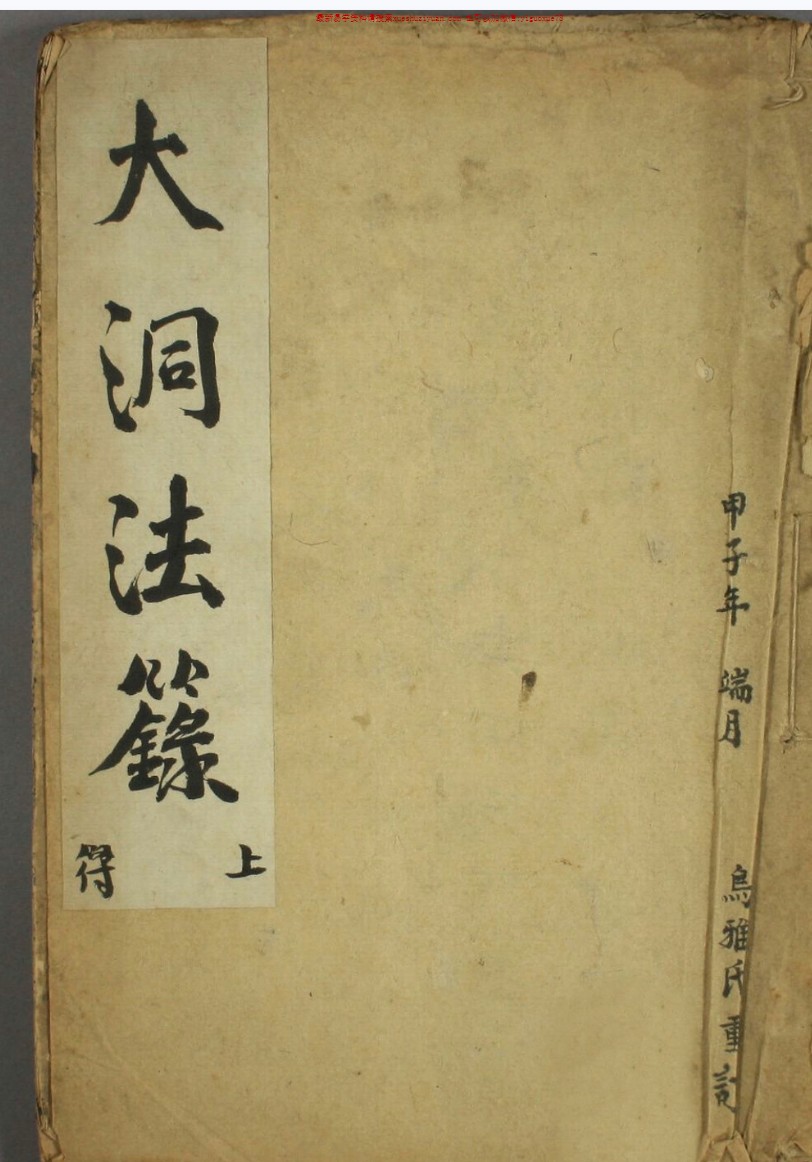 大洞法籙
上
符
甲子年 端月
烏雅氏重訂